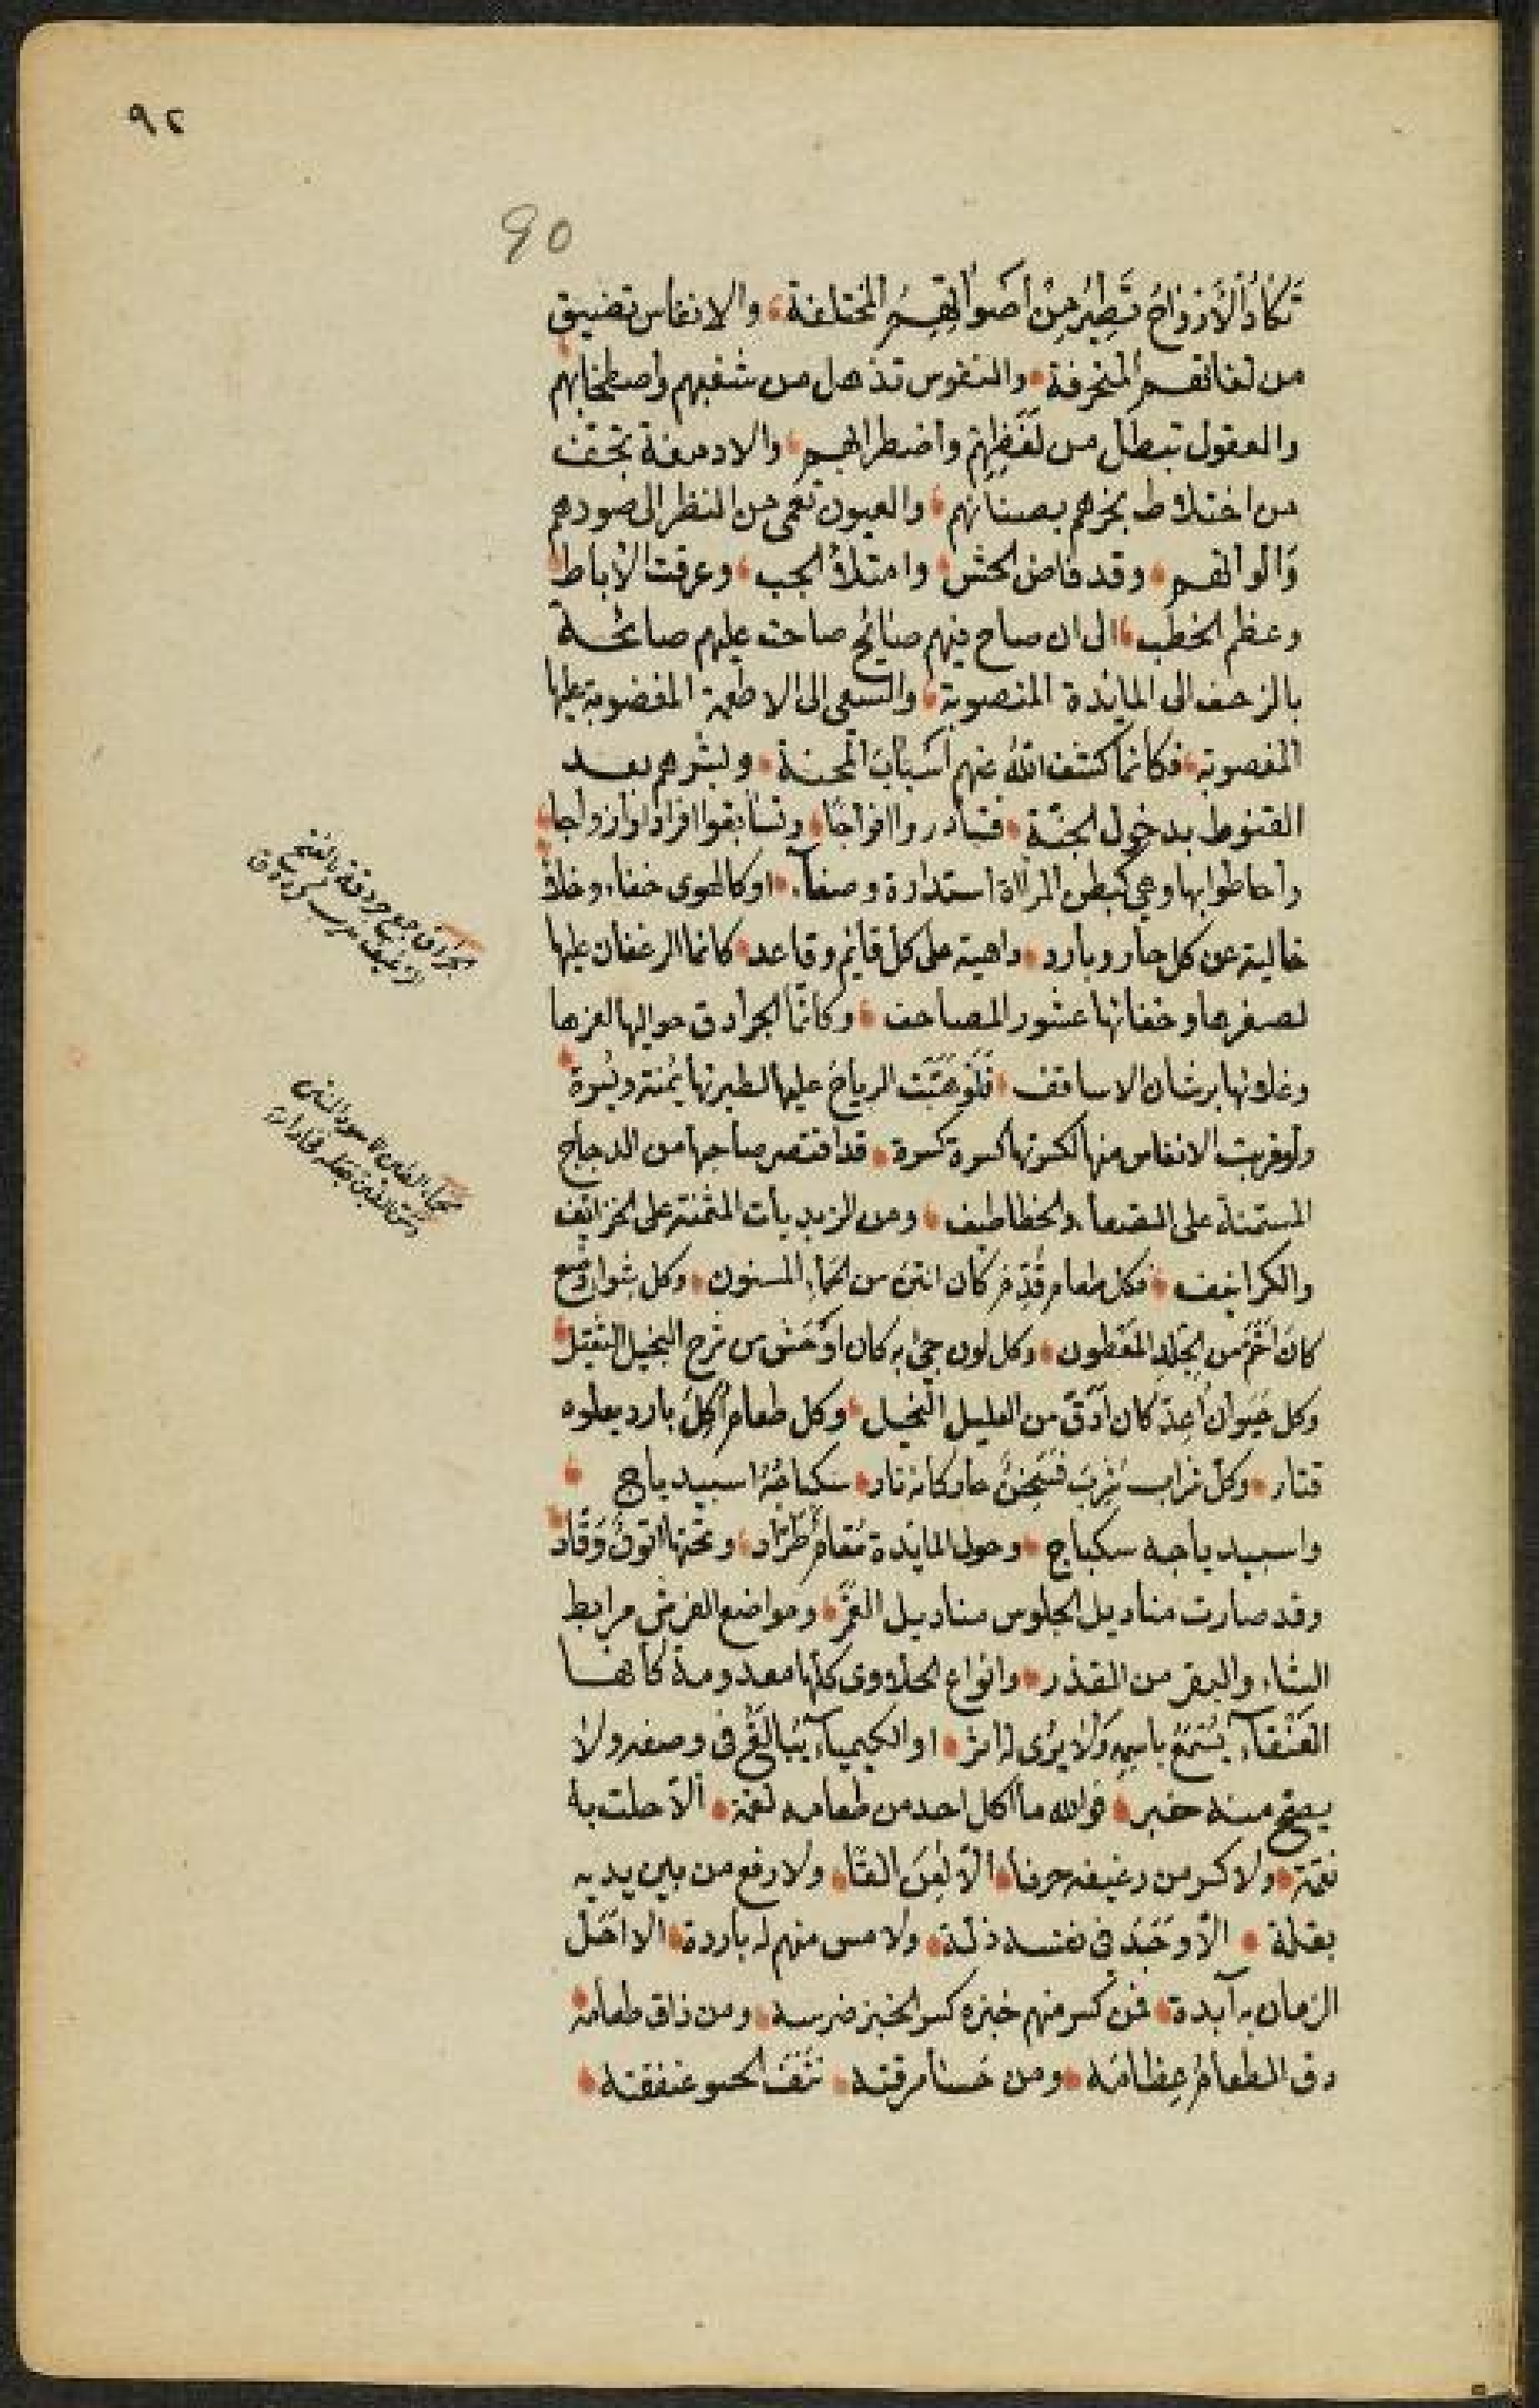 ٩٢
90
تَكَادُ الْأَرْوَاحُ تَطِيرُ مِنْ أَصْوَاتِهِمُ المختلفة، والانفاس تضيق
من لغاتهم المنحرفة، والنفوس تذهل من شغبهم واصطخابهم
والعقول تبطل من لَغَطِهِم واضطرابهم، والادمغة تجف
من اختلاط بخرهم بصنانهم، والعيون تعمى من النظر الى صورهم
وَالوانهم، وقد فاض الحش، وامتلأ الجب، وعرقت الأباط
وعظم الخطب، الى ان صاح فيهم صائح صاحت عليهم صائحة
بالزحف الى المائدة المنصوبة، والسعي الى الاطعمة المغضوبة عليها
المغصوبة، فكانما كشف الله عنهم اسباب المحنة، وبشرهم بعد
القنوط بدخول الجنّة، فتبادروا افواجًا، وتسابقوا افرادا وازواجا
واحاطوا بها وهي كبطن المرأة استدارة وصفآء، اوكالهوى خفاء وخلاء
خالية عن كل حار وبارد، داهية على كل قائم وقاعد، كانما الرغفان عليها
لصغرها وخفائها عشور المصاحف، وكانّما الجرادق حواليها لعزها
وغلائها برشان الاساقف، فَلَوْ هَبَّت الرياحُ عليها لطيرتها يُمنة ويُسرة
ولوقربت الانفاس منها لكسرتها كسرة كسرة، قد اقتصر صاحبها من الدجاج
المستمنة على الخطاطيف، ومن الزبديات المثمنة على الخزائف
والكرانيف، فكل طعام قُدِّم كان انتن من الحمأ المسنون، وكل شواء وضع
كانَ من الجلد المَعَطون، وكل لون جئ به كان اوحش من البخيل الثقيل
وكل حَيَوان اُعِدّ كان اَدَقّ من العليل النحيل، وكل طعام اُكِلَ بارد يعلوه
قتار، وكل شراب شُرِبَ حار كانه نار، سكباجه اسبيد باج
واسبيد باجه سكباج، وحول المائدة طرّاد، وتحتها اتون وَقّاد
وقد صارت مناديل الجلوس مناديل الغمر، ومواضع الفرش مرابط
الشاء والبقر من القذر، وانواع الحلاوى كلها معدومة كأنها
العَنْقآء يُسْتَمَعُ باسمه وَلا يُرَى له اثر، او الكيميآء يُبالَغُ في وصفه ولا
يصح منه خبر، فوالله ما اكل احد من طعامه لقمة، الّا حلت به
نقمة، ولا كسر من رغيفه حرفا، الّا لعن القفا، ولا رفع من بين يديه
بقلة، الّا وَجَدَ في نفسه ذلة، ولا مس منهم له باردة، الا احَلّ
الزمان به آبدة، فمن كسر منهم خبزه كسر الخبز ضرسه، ومن ذاق طعامه
دق الطعامُ عِظامَه، ومن حَسا مرقته، نَتَفَ الحسو عنفقته،
الجرادق جمع جردقة بالفتح
الرغيف معرب